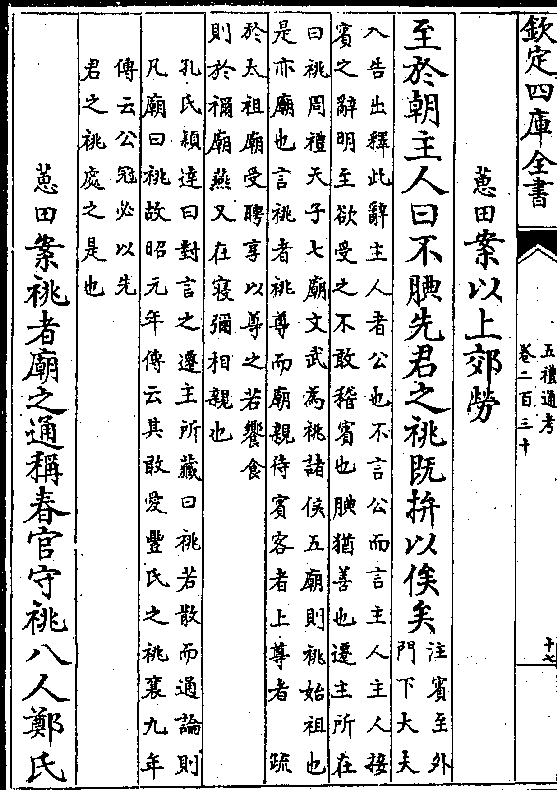 欽定四庫全書
五禮通考
卷二百三十
十七
蕙田案以上郊勞
至於朝主人曰不腆先君之祧既拚以俟矣
注賓至外
門下大夫
入告出釋此辭主人者公也不言公而言主人主人接
賓之辭明至欲受之不敢稽賓也腆猶善也遷主所在
曰祧周禮天子七廟文武為祧諸侯五廟則祧始祖也
是亦廟也言祧者祧尊而廟親待賓客者上尊者 疏
於太祖廟受聘享以尊之若饗食
則於禰廟燕又在寢彌相親也
孔氏穎達曰對言之遷主所藏曰祧若散而通論則
凡廟曰祧故昭元年傳云其敢愛豐氏之祧襄九年
傳云公冠必以先
君之祧處之是也
蕙田案祧者廟之通稱春官守祧八人鄭氏